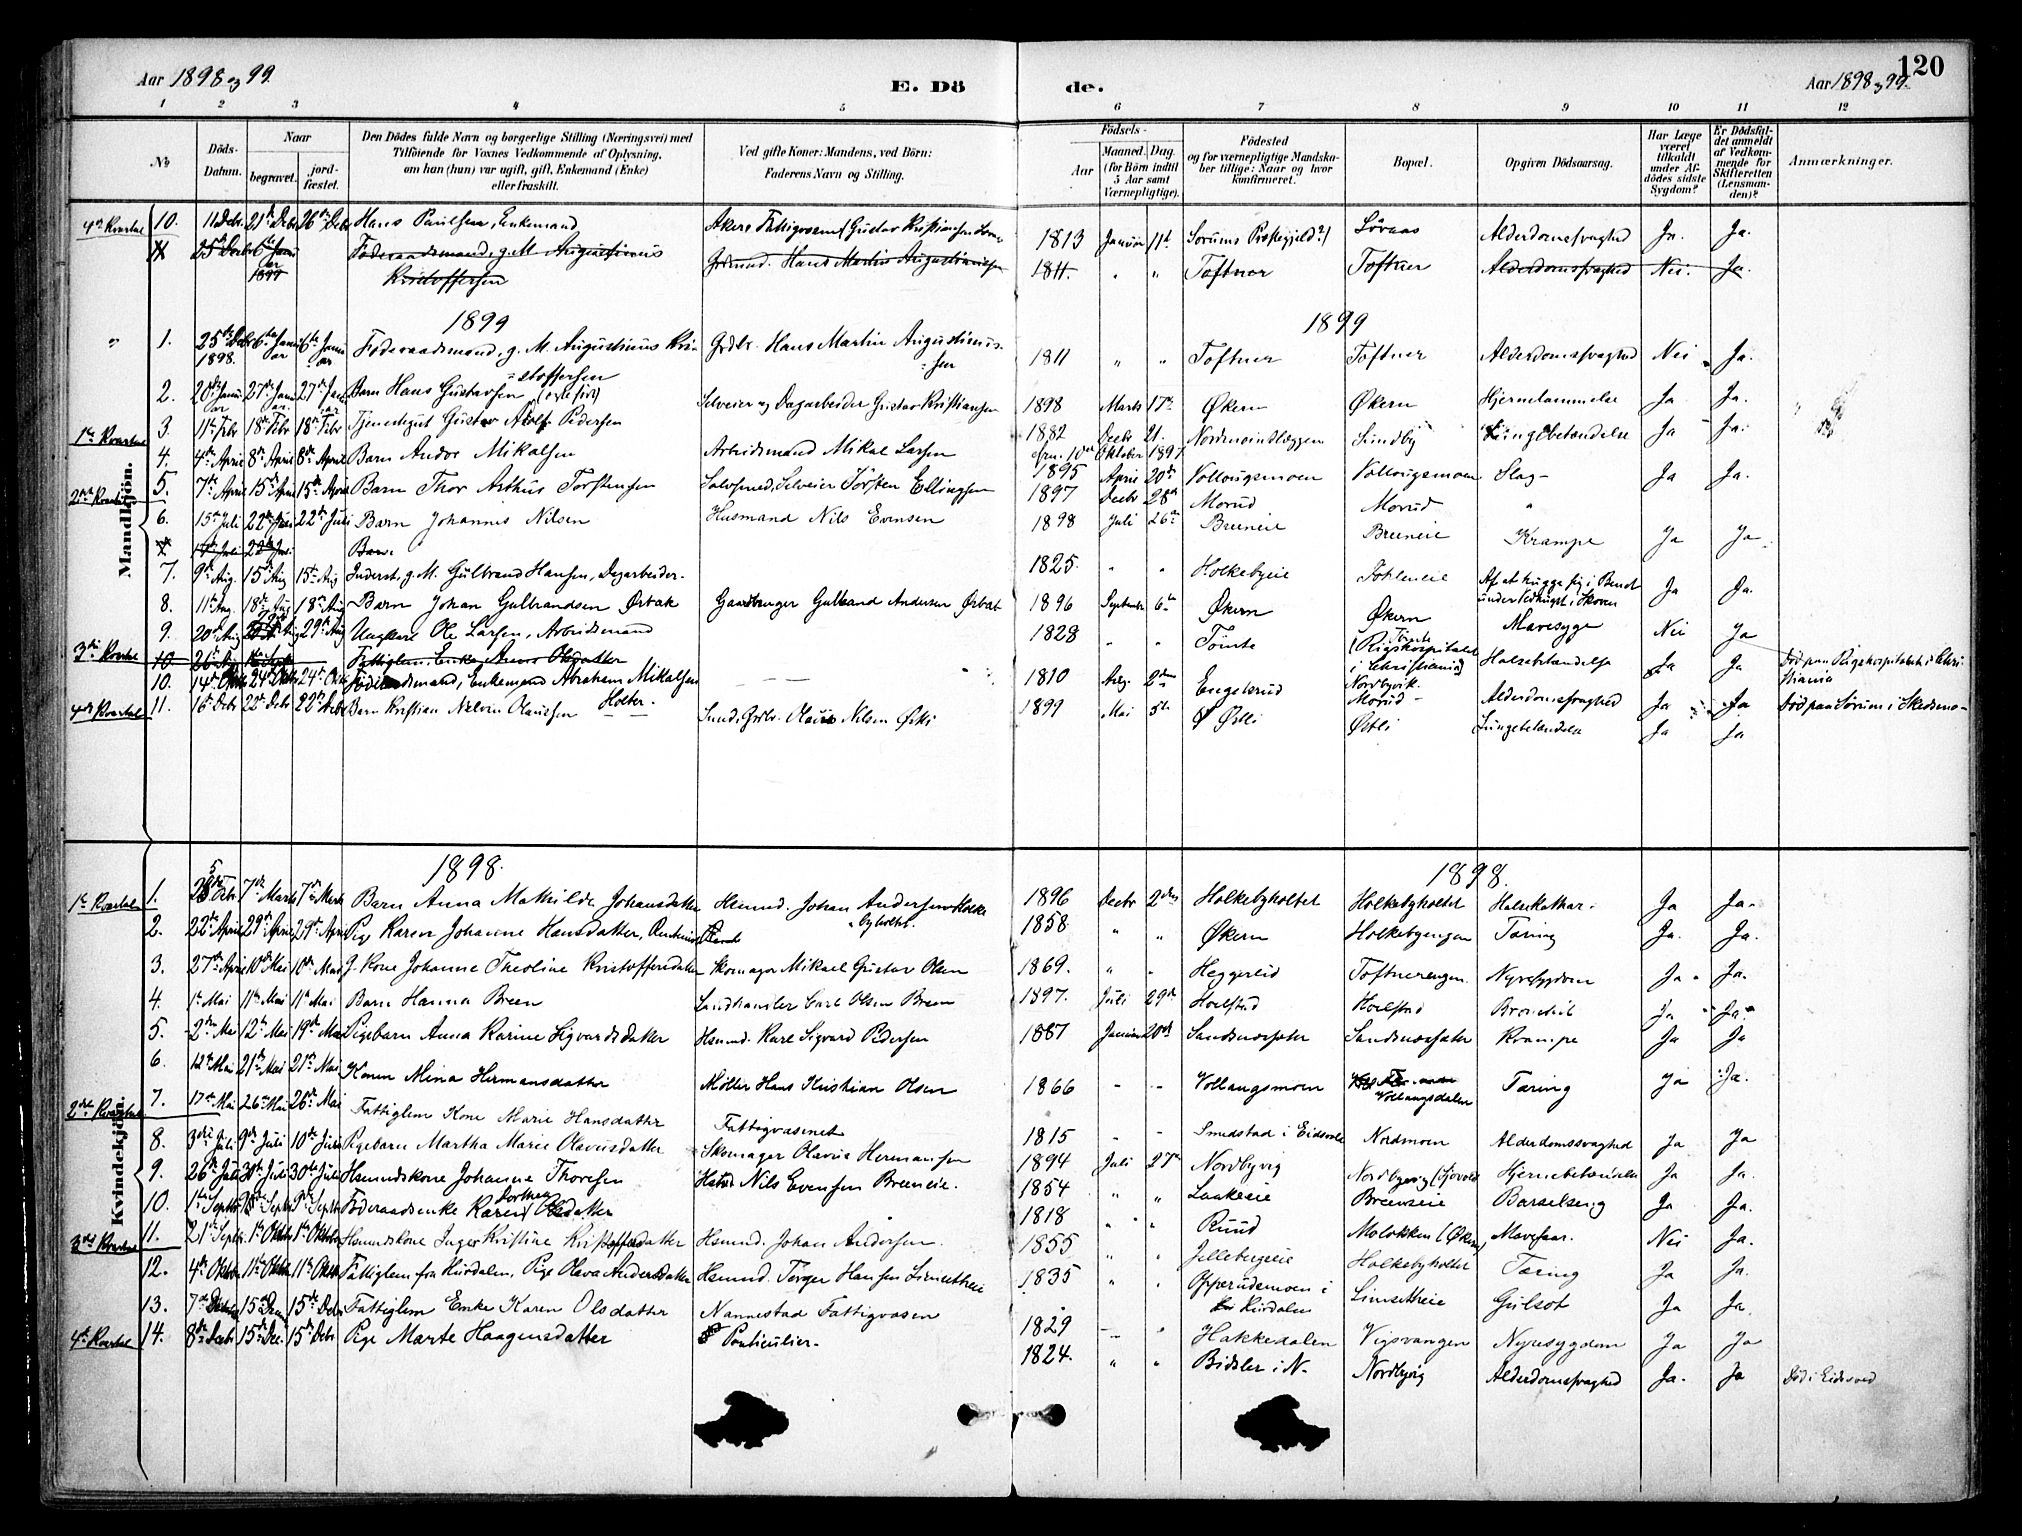 120
Aar 1898 og 99.
E. Dö
de.
Aar 1898 og 99.
1 2 3 4 5 6 7 8 9 10 11 12
No
Döds-Datum.
Naar
begravet.
jord-fæstet.
Den Dödes fulde Navn og borgerlige Stilling (Næringsvei) med
Tilföiende for Voxnes Vedkommende af Oplysning,
om han (hun) var ugift, gift, Enkemand (Enke)
eller fraskilt.
Ved gifte Koner: Mandens, ved Börn:
Faderens Navn og Stilling.
Födsels-
Aar
Maaned. Dag.
(for Börn indtil
5 Aar samt
Værnepligtige).
Födested
og for værnepligtige Mandska-
ber tillige: Naar og hvor
konfirmeret.
Bopæl.
Opgiven Dödsaarsag.
Har Læge
været
tilkaldt
under Af-
dödes sidste
Sygdom?
Er Dödsfal-
det anmeldt
af Vedkom-
mende for
Skifteretten
(Lensman-
den)?
Anmærkninger.
Mandkjön.
4de Kvartal 10. 11 Debr 21de Debr 26de Debr Hans Paulsen, Enkemand Akers Fattigvæsen (Gustav Kristiansen 1813 Januar 11te Sörums Præstegjeld?) Lövaas Alderdomssvaghed Ja. Ja.
11 25de Debr 6te Januar 1899 Föderaadsmand, g. M. Augustinius Kristoffersen Grdmnd. Hans Martin Augustiniussen 1811. " " Toftner Toftner Alderdomssvaghed Nei. Ja.
1899 1899
" 1. 25de Debr 1898. 6te Januar 6te Januar Föderaadsmand, g. M. Augustinus Kristoffersen Grdbr. Hans Martin Augustinussen 1811 " " Toftner Toftner Alderdomssvaghed Nei Ja.
2. 20de Januar 27de Januar 27de Januar Barn Hans Gustavsen (ægtefødt) Selveier og Dagarbeider Gustav Kristiansen 1898 Marts 17de Økern Økern Hjernelammelse Ja Ja.
1ste Kvartal 3. 11te Febr 18de Febr 18de Febr Tjenestegut Gustav Adolf Pedersen 1882 Decbr 21. Nordmoindlæggen Sundby Lungebetændelse Ja Ja.
10de Oktober 1897
4. 4de April 8de April 8de April Barn Andor Mikalsen Arbeidsmand Mikal Larsen 1895 April 20de Vollaugsmoen Vollaugsmoen Slag Ja Ja.
2det Kvartal 5. 7de April 15de April 15de April Barn Thor Arthur Torstensen Selveier Törsten Ellingsen 1897 Decbr 28de Morud Morud "
6. 15de Juli 22de Juli 22de Juli Barn Johannes Nilsen Husmand Nils Evensen 1898 Juli 26de Breeneie Breeneie Krampe Ja Ja
7. 17de Juli 22de Juli Barn
7. 9de Aug. 15de Aug 15de Aug Inderst, g. M. Gulbrand Hansen, Dagarbeider. 1825. " " Holkebyeie Af at hugge sig i Benet under Vedhugst i Skoven Ja Ja.
8. 11te Aug. 18de Aug 18de Aug Barn Johan Gulbrandsen Ørbak Gaardbruger Gulbrand Andersen Ørbak 1896 September 6te Økern Økern Mavesyge Nei Ja
9. 20de Aug 29de Aug Ungkarl Ole Larsen, Arbeidsmand 1828 " " Tömte Tömte (Rigshospitalet i Christiania) Halsbetændelse Ja Ja Död paa Rigshospitalet i Christiania
3die Kvartal 10. 26de Aug Fattiglem, Enke Anne Olsdatter
10. 14de Oktbr 24de Oktbr 24de Oktbr Föderaadsmand, Enkemand Abraham Mikalsen Holter. — — 1810 Aug. 2den Engelsrud Nordbyvik. Morud Alderdomssvaghed Ja Ja Död paa Sörum i Skedsmo
4de Kvartal 11. 16de Debr 22de Debr 22de Debr Barn Kristian Nelvin Olaussen Smed, Grdbr. Olaus Nilsen Østli 1899 Mai 5te Østli Østli Lungebetændelse Ja Ja
Kvindekjön.
1898. 1898.
1ste Kvartal 1. 25de Febr 7de Marts 7de Marts Barn Anna Mathilde Johansdatter Hsmnd. Johan Andersen Holkebyholtet. 1896 Decbr 2den Holkebyholtet Holkebyholtet Halskathar. Ja Ja.
2. 22de April 29de April 29de April Pige Karen Johanne Hansdatter, 1858. " " Økern Holkebyengen Tæring Ja. Ja.
3. 27de April 10de Mai 10de Mai G. Kone Johanne Theoline Kristoffersdatter Skomager Mikael Gustav Olsen 1869. " " Heggereid Toftnerengen Nyresygdom Ja Ja.
4. 1ste Mai 11te Mai 11te Mai Barn Hanna Breen Landhandler Carl Olsen Breen 1897. Juli 29de Hoelstad Hoelstad Bronchit Ja Ja
5. 2den Mai 12te Mai 19de Mai Pigebarn Anna Karine Sigvardsdatter Hsmnd. Karl Sigvard Pedersen 1887 Januar 20de Sandsnessæter Sandsnessæter Krampe Ja Ja
6. 12te Mai 21de Mai 21de Mai Konen Mina Hermansdatter Möller Hans Kristian Olsen 1866 - - Vollaugsmoen Vollaugsdalen Tæring Ja Ja.
2det Kvartal 7. 17de Mai 26de Mai 26de Mai Fattiglem Kone Marie Hansdatter Fattigvæsenet 1815 - - Smedstad i Eidsvold Nordmoen Alderdomssvaghed Ja Ja
8. 3die Juli 9de Juli 10de Juli Pigebarn Martha Marie Olavusdatter Skomager Olavus Hermansen 1894 Juli 27de Nordbyvig Nordbyvig Hjernebetændelse Ja Ja.
9. 26de Juli 30de Juli 30de Juli Hsmndskone Johanne Thoresen Hsmd Nils Evensen Breeneie. 1854 " " Laakeeie Breeneie Barselseng Ja Ja.
10. 1ste Septbr 9de Septbr 9de Septbr Föderaadsenke Karen Olsdatter 1818 " " Ruud Molokken (Økern) Mavesaar. Nei Ja.
3die Kvartal 11. 21de Septbr 1ste Oktbr 1ste Oktbr Hsmndskone Inger Kristine Kristoffersdatter Hsmnd. Johan Andersen. 1855 " " Jellebergeie Holkebyholtet Tæring Ja Ja.
12. 4de Oktbr 11te Oktbr 11te Oktbr Fattiglem fra Hurdalen, Pige Oleva Andersdatter Hsmnd. Törger Hansen Limsetheie 1835 " " Opperudsmoen i Hurdalen Limsetheie Gulsot Ja Ja.
13. 7de 15de Debr 15de Debr Fattiglem Enke Karen Olsdatter Nannestad Fattigvæsen 1829 — " Hakkedalen Vigsvangen Nyresygdom Ja Ja
4de Kvartal 14. 8de Decbr 15de Dec 15de Debr Pige Marte Haagensdatter Particulier. 1824. " " Bidsler i N. Nordbyvig Alderdomssvaghed Ja. Ja Död i Eidsvold